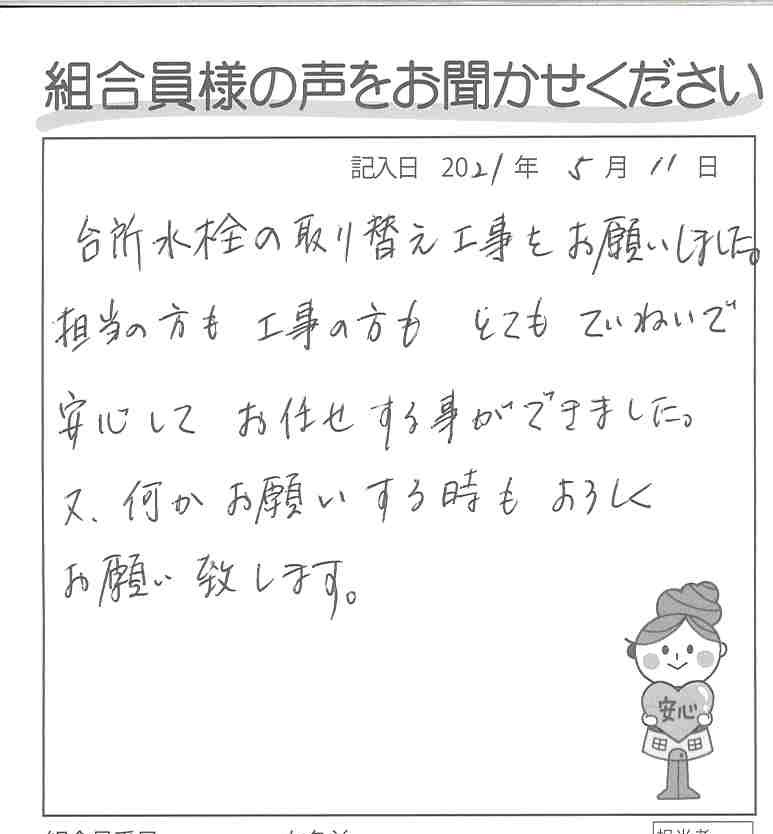 組合員様の声をお聞かせください
記入日 2021年 5月 11日
台所水栓の取り替え工事をお願いしました。
担当の方も 工事の方も とても ていねいで
安心して お任せする事ができました。
又、何かお願いする時も よろしく
お願い致します。
安心